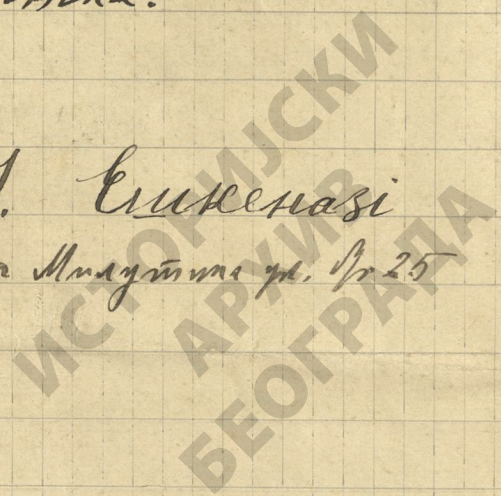 Ешкеназі
Милутина ул. № 25
ИСТОРИЈСКИ
АРХИВ
БЕОГРАДА